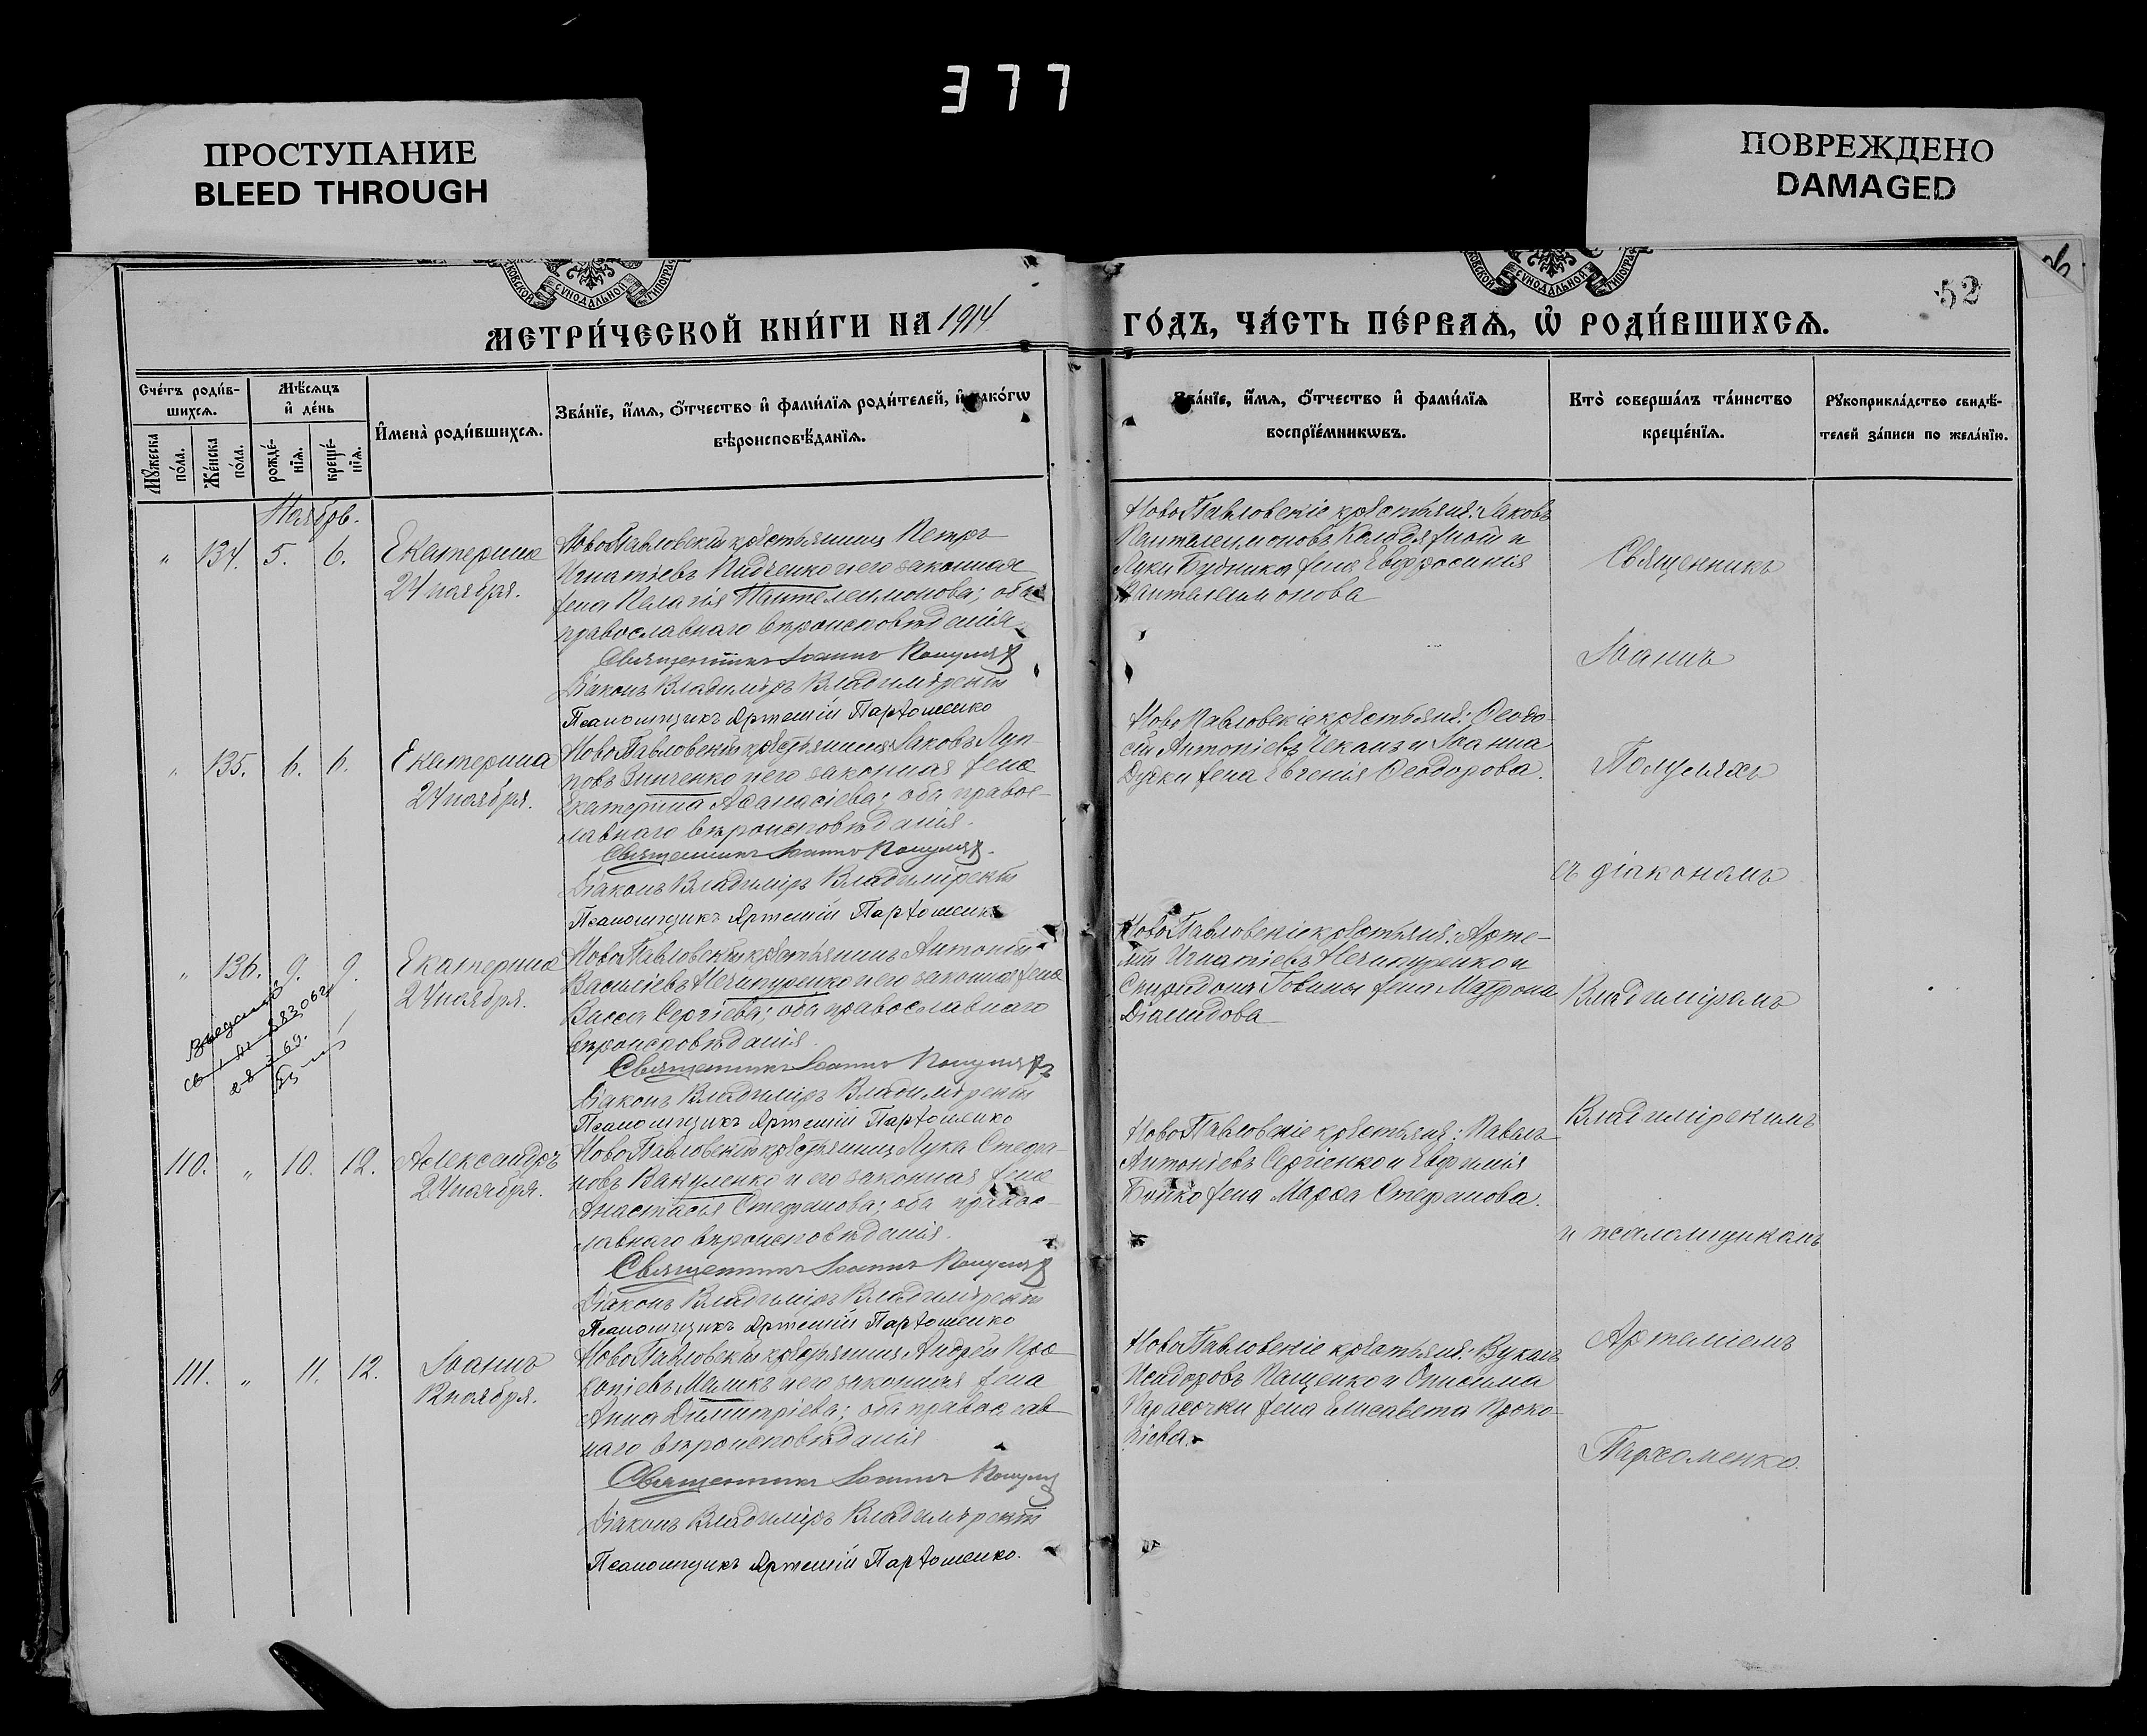 377
ПРОСТУПАНИЕ
BLEED THROUGH
ПОВРЕЖДЕНО
DAMAGED
52
МЕТРИ́ЧЕСКОЙ КНИ́ГИ НА 1914
ГО́ДЪ, ЧА́СТЬ ПЕ́РВАѦ, Ѡ҆ РОДИ́ВШИХСѦ.
Сче́тъ роди́в-
шихсѧ.
Мꙋжеска по́ла.
Же́нска по́ла.
Мѣ́сѧцъ и҆ де́нь
рожде́-нїѧ.
креще́-нїѧ.
И҆мена̀ роди́вшихсѧ.
Зва́нїе, и҆́мѧ, ѻ҆́тчество и҆ фами́лїѧ роди́телей, и҆ како́гѡ
вѣроисповѣ́данїѧ.
Зва́нїе, и҆́мѧ, ѻ҆́тчество и҆ фами́лїѧ
воспрїе́мникѡвъ.
Кто̀ соверша́лъ та́инство
креще́нїѧ.
Рꙋкоприкла́дство свидѣ́-
телей за́писи по жела́нїю.
Ноябрь.
" 134. 5. 6. Екатерина
24 ноября.
НовоПавловскій крестьянинъ Петръ
Игнатіевъ Индченко и его законная
жена Пелагія Пантелеимонова; оба
православнаго вѣроисповѣданія
Священникъ Іоаннъ Полуляхъ
Діаконъ Владиміръ Владимірскій
Псаломщикъ Артемій Пархоменко
НовоПавловскіе крестьяне: Іаковъ
Пантелеимоновъ и
Луки Будника жена Евфросинія
Пантелеимонова
" 135. 6. 6. Екатерина
24 ноября.
НовоПавловскій крестьянинъ Іаковъ Луп-
повъ Зинченко и его законная жена
Екатерина Аѳанасіева; оба правос-
лавнаго вѣроисповѣданія.
Священникъ Іоаннъ Полуляхъ.
Діаконъ Владиміръ Владимірскій
Псаломщикъ Артемій Пархоменко
НовоПавловскіе крестьяне: Ѳеодо-
сій Антоніевъ Чеканъ и Іоанна
Дудки жена Евгенія Ѳеодорова.
" 136. 9. 9. Екатерина
24 ноября.
НовоПавловскій крестьянинъ Антоній
Василіевъ Нечипуренко и его законная жена
Васса Сергіева; оба православнаго
вѣроисповѣданія.
Священникъ Іоаннъ Полуляхъ
Діаконъ Владиміръ Владимірскій
Псаломщикъ Артемій Пархоменко
НовоПавловскіе крестьяне: Арте-
мій Игнатіевъ Нечипуренко и
Спиридона Говины жена Матрона
Діамидова
110. " 10. 12. Александръ
24 ноября.
НовоПавловскій крестьянинъ Лука Стефа-
новъ Вакуленко и его законная жена
Анастасія Стефанова; оба правос-
лавнаго вѣроисповѣданія.
Священникъ Іоаннъ Полуляхъ
Діаконъ Владиміръ Владимірскій
Псаломщикъ Артемій Пархоменко
НовоПавловскіе крестьяне: Павелъ
Антоніевъ Сергіенко и Евфимія
Бойко жена Марѳа Стефанова.
111. " 11. 12. Іоаннъ
12 ноября.
НовоПавловскій крестьянинъ Андрей Про-
копіевъ Маликъ и его законная жена
Анна Димитріева; оба православ-
наго вѣроисповѣданія
Священникъ Іоаннъ Полуляхъ
Діаконъ Владиміръ Владимірскій
Псаломщикъ Артемій Пархоменко.
НовоПавловскіе крестьяне: Вукалъ
Исидоровъ Пащенко и Онисима
Парасочки жена Елисавета Проко-
піева.
Священникъ
Іоаннъ
Полуляхъ
съ діакономъ
Владиміромъ
Владимірскимъ
и псаломщикомъ
Артеміемъ
Пархоменко.